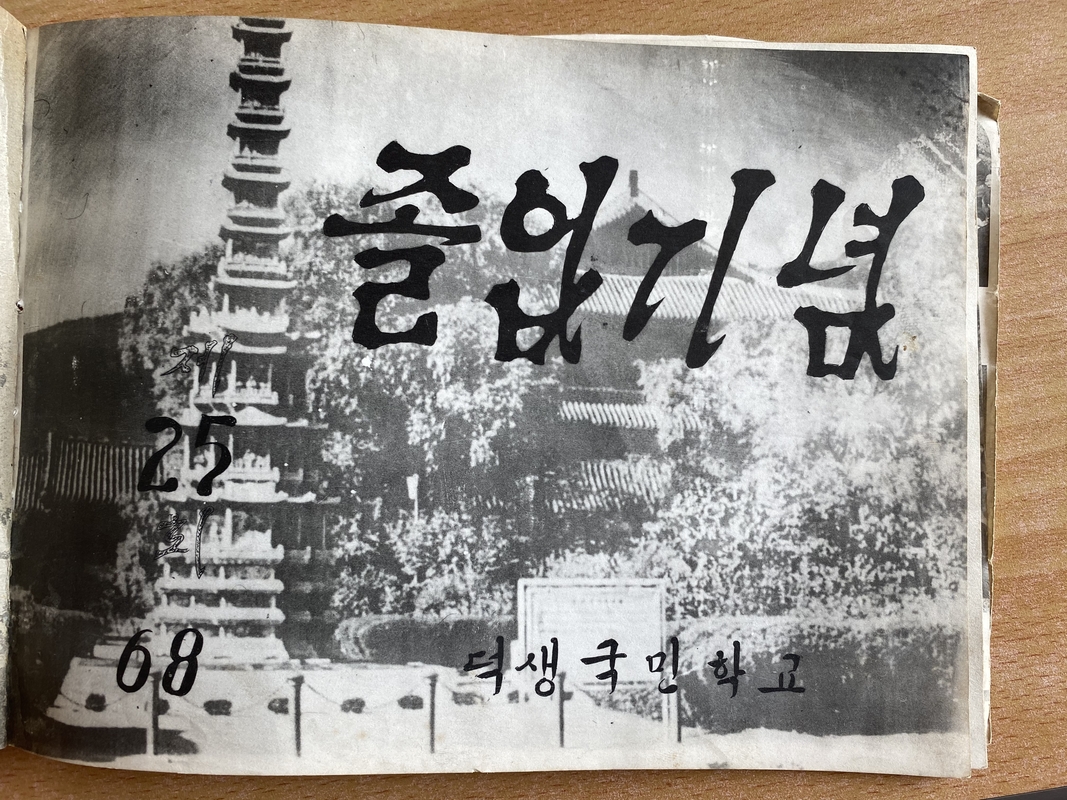 졸업기념
제
25
회
68
덕생국민학교